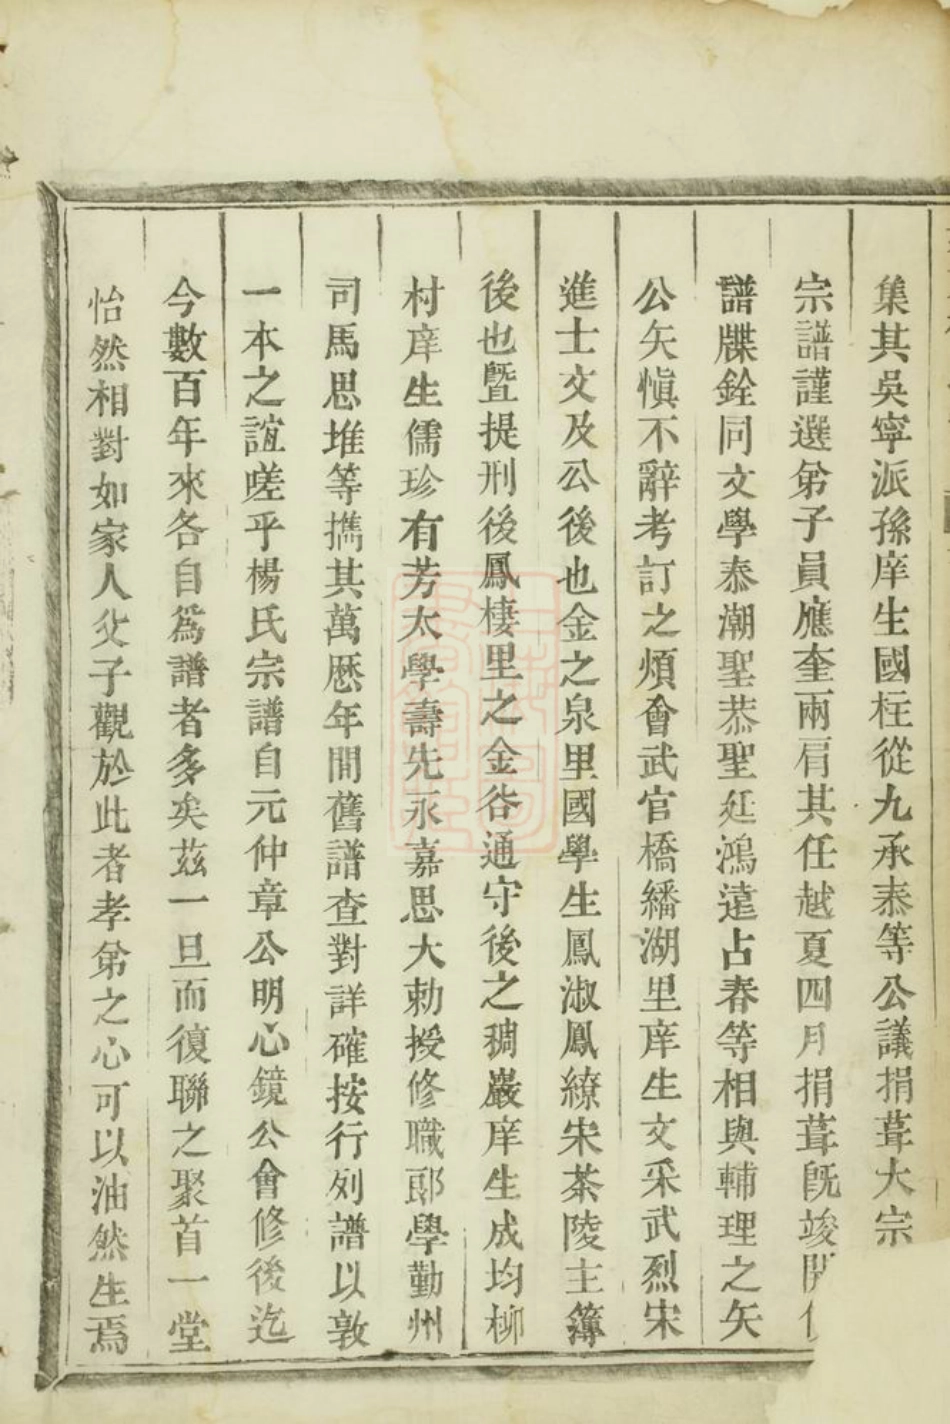 集其吳寧派孫庠生國柱從九承泰等公議捐葺大宗
宗譜謹選弟子員應奎兩肩其任越夏四月捐葺既竣開
譜牒銓同文學泰潮聖恭聖廷鴻遠占春等相與輔理之矢
公矢慎不辭考訂之煩會武官橋繙湖里庠生文采武烈宋
進士文及公後也金之泉里國學生鳳淑鳳繚宋茶陵主簿
後也暨提刑後鳳棲里之金谷通守後之稠巖庠生成均柳
村庠生儒珍有芳太學壽先永嘉思大勅授修職郎學勤州
司馬思堆等攜其萬厯年間舊譜查對詳確按行列譜以敦
一本之誼嗟乎楊氏宗譜自元仲章公明心鏡公會修後迄
今數百年來各自爲譜者多矣茲一旦而復聯之聚首一堂
怡然相對如家人父子觀於此者孝弟之心可以油然生焉